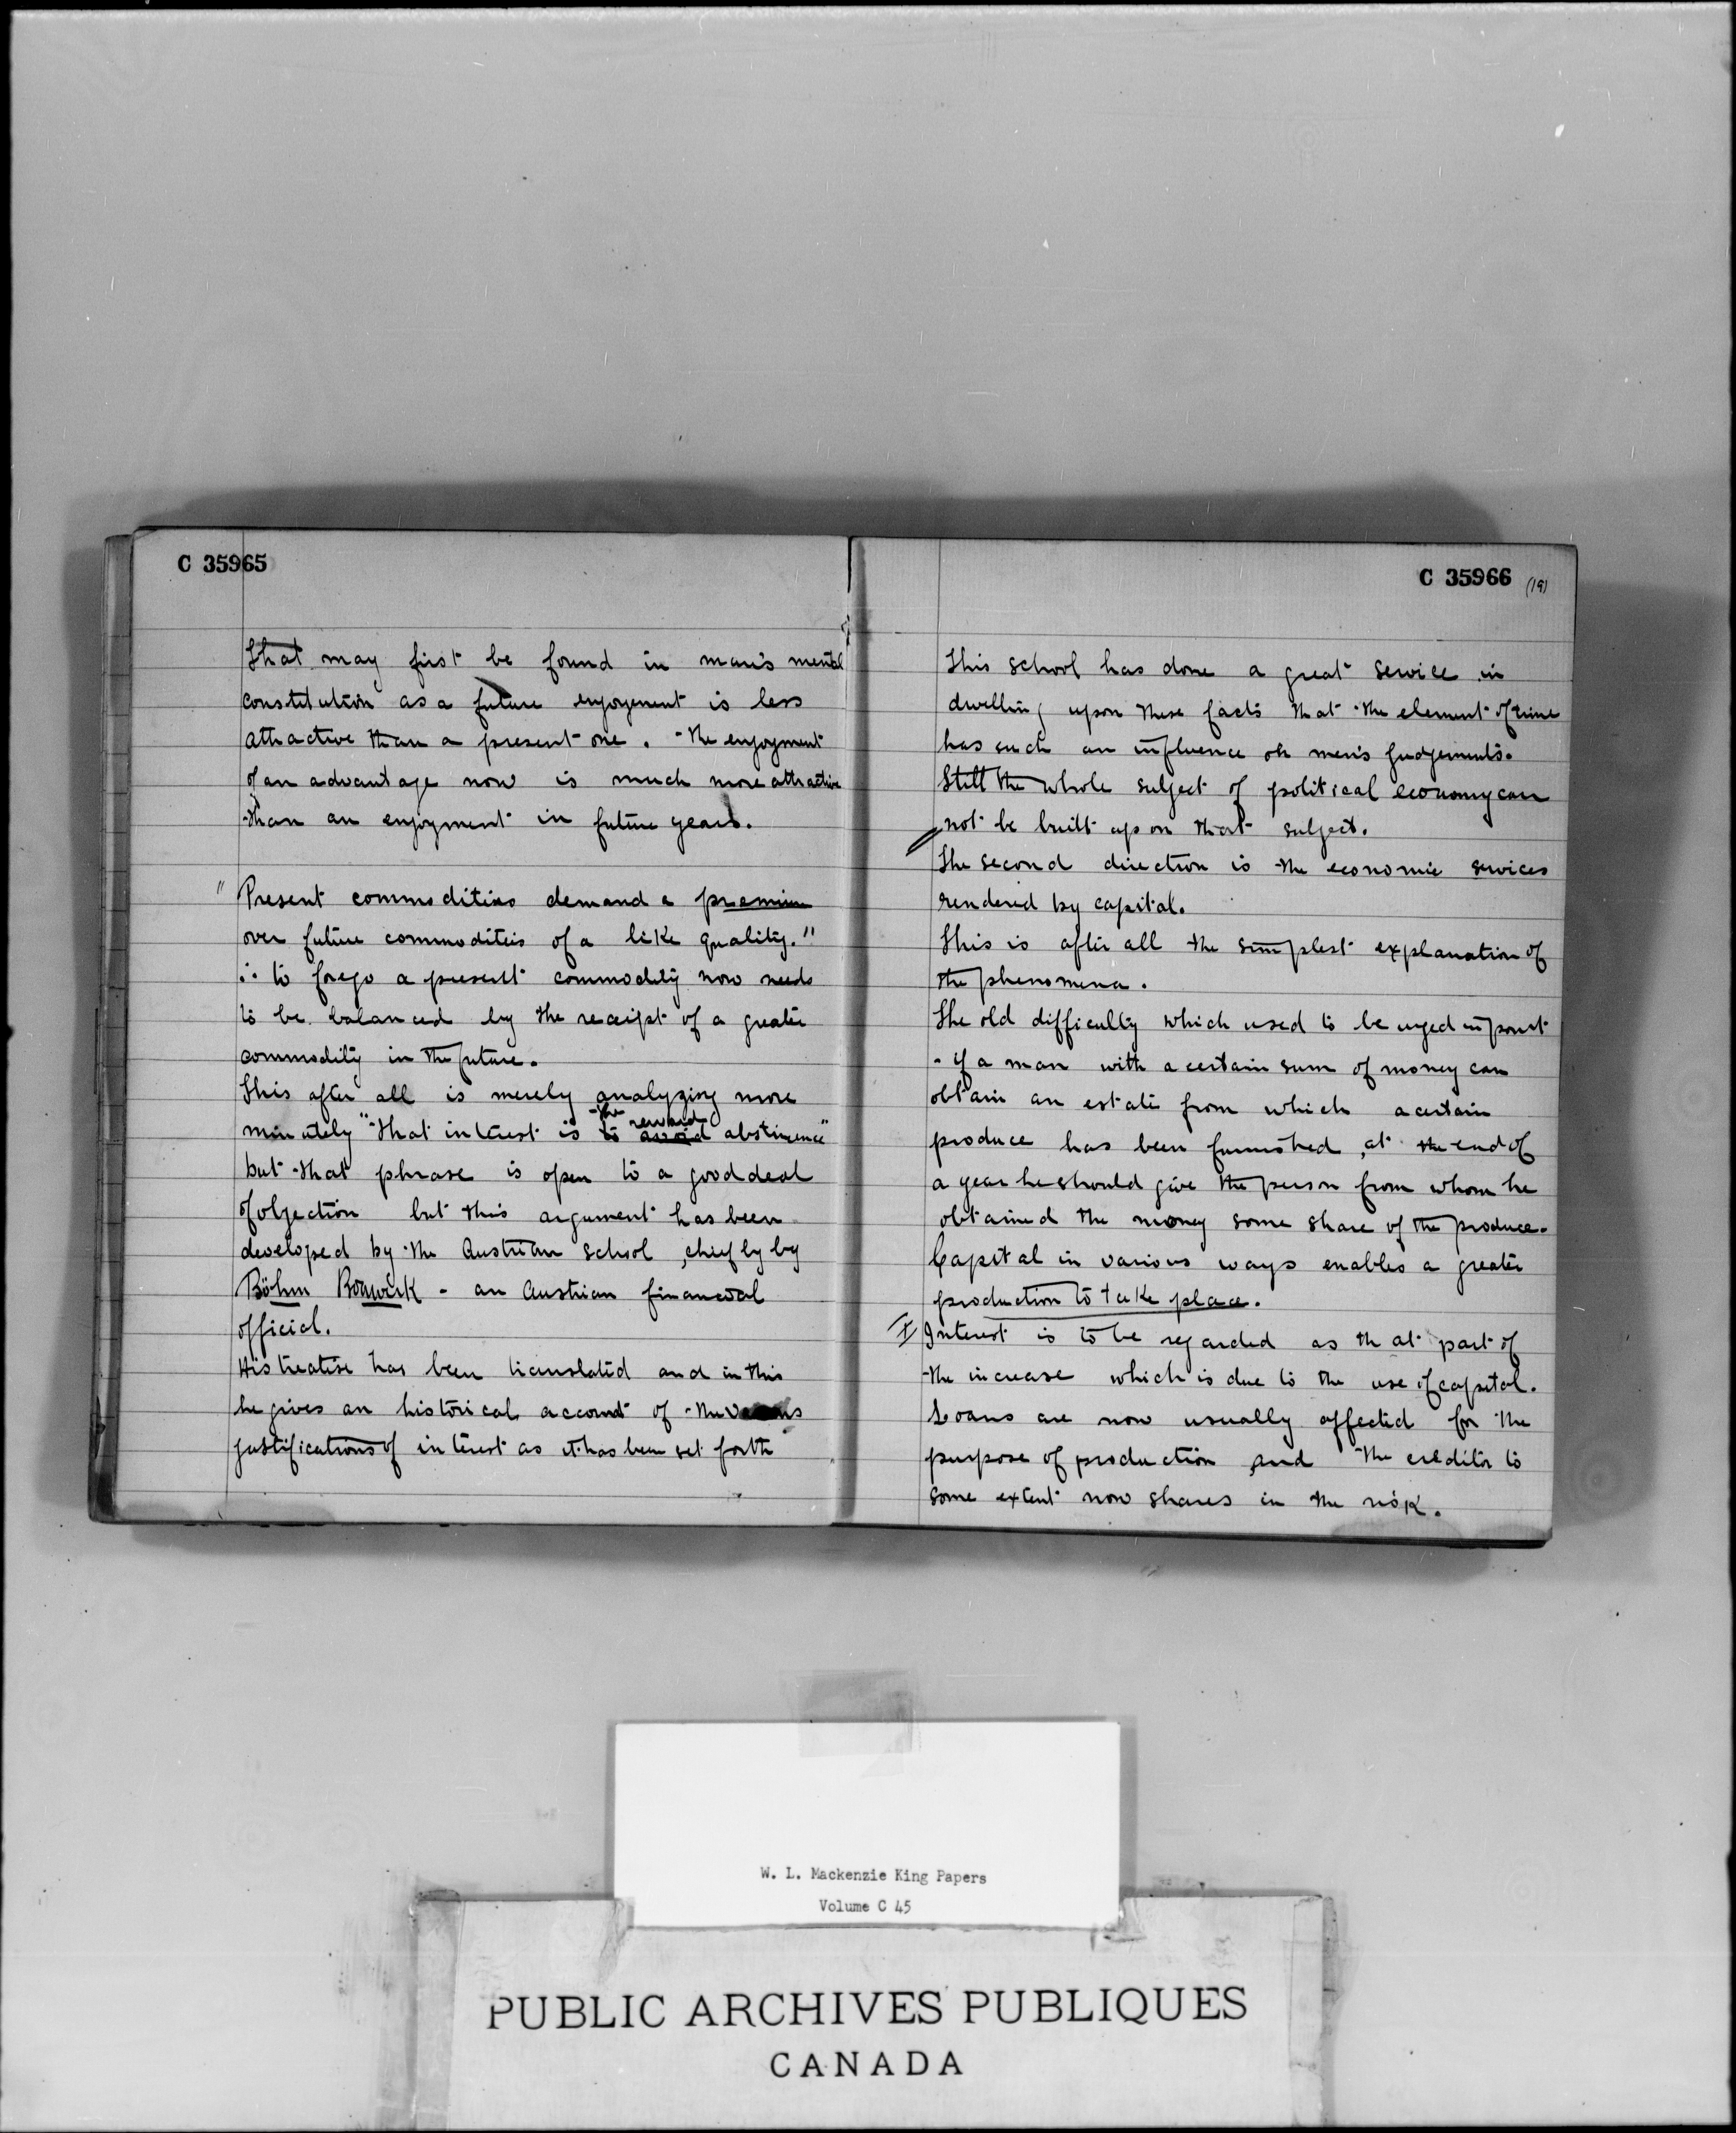 C 35965
That may first be found in man's mental
constitution as a future enjoyment is less
attractive than a present one. The enjoyment
of an advantage now is much more attractive
than an enjoyment in future years.
" Present commodities demand a premium
over future commodities of a like quality."
∴ to forego a present commodity now needs
to be balanced by the receipt of a greater
commodity in the future.
This after all is merely analyzing more
the reward
minutely "that interest is to avoid abstinence"
but that phrase is open to a good deal
of objection but this argument has been
developed by the Austrian school, chiefly by
Böhm Bawerk - an Austrian financial
official.
His treatise has been translated and in this
he gives an historical account of the various
justifications of interest as it has been set forth
C 35966 (19)
This school has done a great service in
dwelling upon these facts that the element of time
has such an influence on men's judgements.
Still the whole subject of political economy can
not be built up on that subject.
The second direction is the economic services
rendered by capital.
This is after all the simplest explanation of
the phenomena.
The old difficulty which used to be urged in point
- if a man with a certain sum of money can
obtain an estate from which a certain
produce has been furnished, at the end of
a year he should give the person from whom he
obtained the money some share of the produce.
Capital in various ways enables a greater
production to take place.
I Interest is to be regarded as that part of
the increase which is due to the use of capital.
Loans are now usually affected for the
purpose of production and the creditor to
some extent now shares in the risk.
W. L. Mackenzie King Papers
Volume C 45
PUBLIC ARCHIVES PUBLIQUES
CANADA